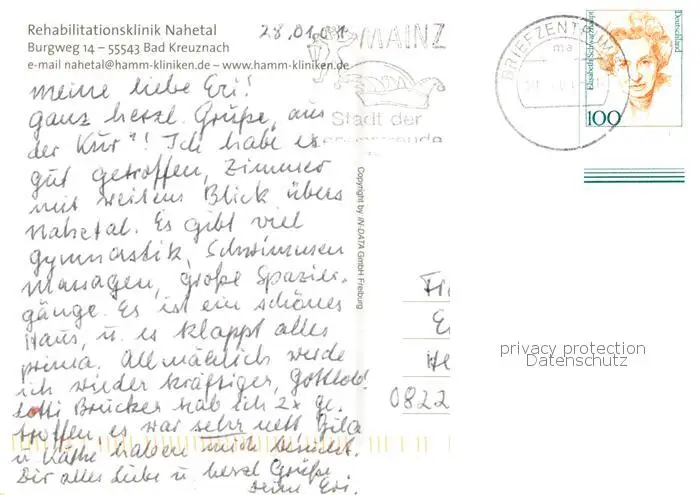 Rehabilitationsklinik Nahetal
Burgweg 14 – 55543 Bad Kreuznach
e-mail nahetal@hamm-kliniken.de – www.hamm-kliniken.de
28.01.01
meine liebe Eri!
ganz herzl. Grüße, aus
der Kur"! Ich habe es
gut getroffen, Zimmer
mit weitem Blick übers
Nahetal. Es gibt viel
gymnastik, Schwimmen
massagen, große Spazier-
gänge. Es ist ein schönes
Haus, u. es klappt alles
prima. Allmählich werde
ich wieder kräftiger, Gottlob!
Lotti Brücker hab ich 2x ge-
troffen, es war sehr nett
u Käthe haben mich besucht.
Dir alles Liebe u herzl Grüße
Deine Eri.
MAINZ
Stadt der
BRIEFZENTRUM
ma
Elisabeth Schwarzhaupt
Deutschland
100
Copyright by IN-DATA GmbH Freiburg
0822
privacy protection
Datenschutz